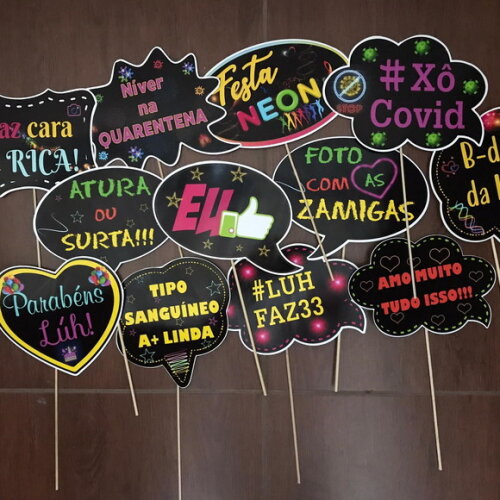 az cara
RICA!
Niver
na
QUARENTENA
Festa
NEON
#Xô
Covid
STOP
ATURA
OU
SURTA!!!
EU
FOTO
COM AS
ZAMIGAS
B-d
da
Parabéns
Lúh!
TIPO
SANGUÍNEO
A+ LINDA
#LUH
FAZ33
AMO MUITO
TUDO ISSO!!!